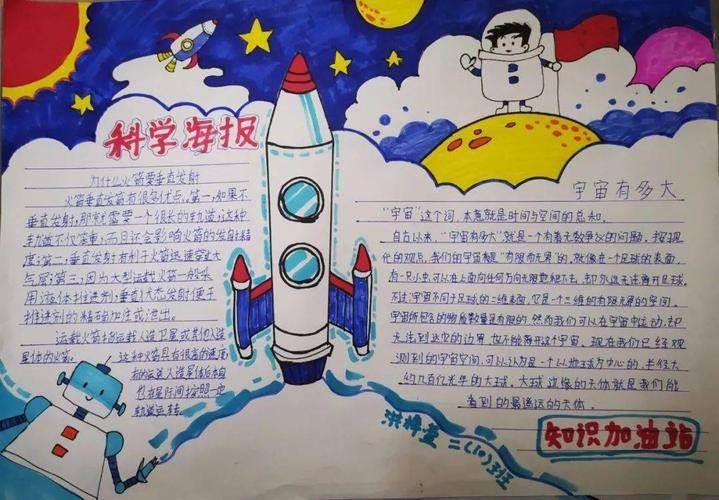 科学海报
为什么火箭要垂直发射
火箭垂直发箭有很多优点。第一，如果不
垂直发射，那就需要一个很长的轨道，这种
轨道不仅笨重，而且还会影响火箭的发射精
度；第二，垂直发射有利于火箭迅速穿过大
气层；第三，因为大型运载火箭一般采
用液体推进剂，垂直状态发射便于
推进剂的精确加注或泄出。
运载火箭指运载人造卫星或其他人造
星体的火箭。这种火箭具有很高的速度，
把运送人造星体后
也 按照一定
轨道运转。
宇宙有多大
“宇宙”这个词，本意就是时间与空间的总和。
自古以来，“宇宙有多大”就是一个有着无数争议的问题。按现
代的观点，我们的宇宙是“有限而无界”的，就像在一个足球的表面，
有一只小虫可以在上面向任何方向无限爬下去，却永远无法离开足球。
不过宇宙不同于足球的二维表面，它是一个三维的有限无界的空间。
宇宙所包含的物质数量是有限的，然而我们可以在宇宙中运动，却
无法到达它的边界，也不能离开这个宇宙。现在我们已经观
测到的宇宙空间，可以认为是一个以地球为中心的，半径大
约几百亿光年的大球。大球边缘的天体就是我们能
看到的最遥远的天体。
知识加油站
二(10)班